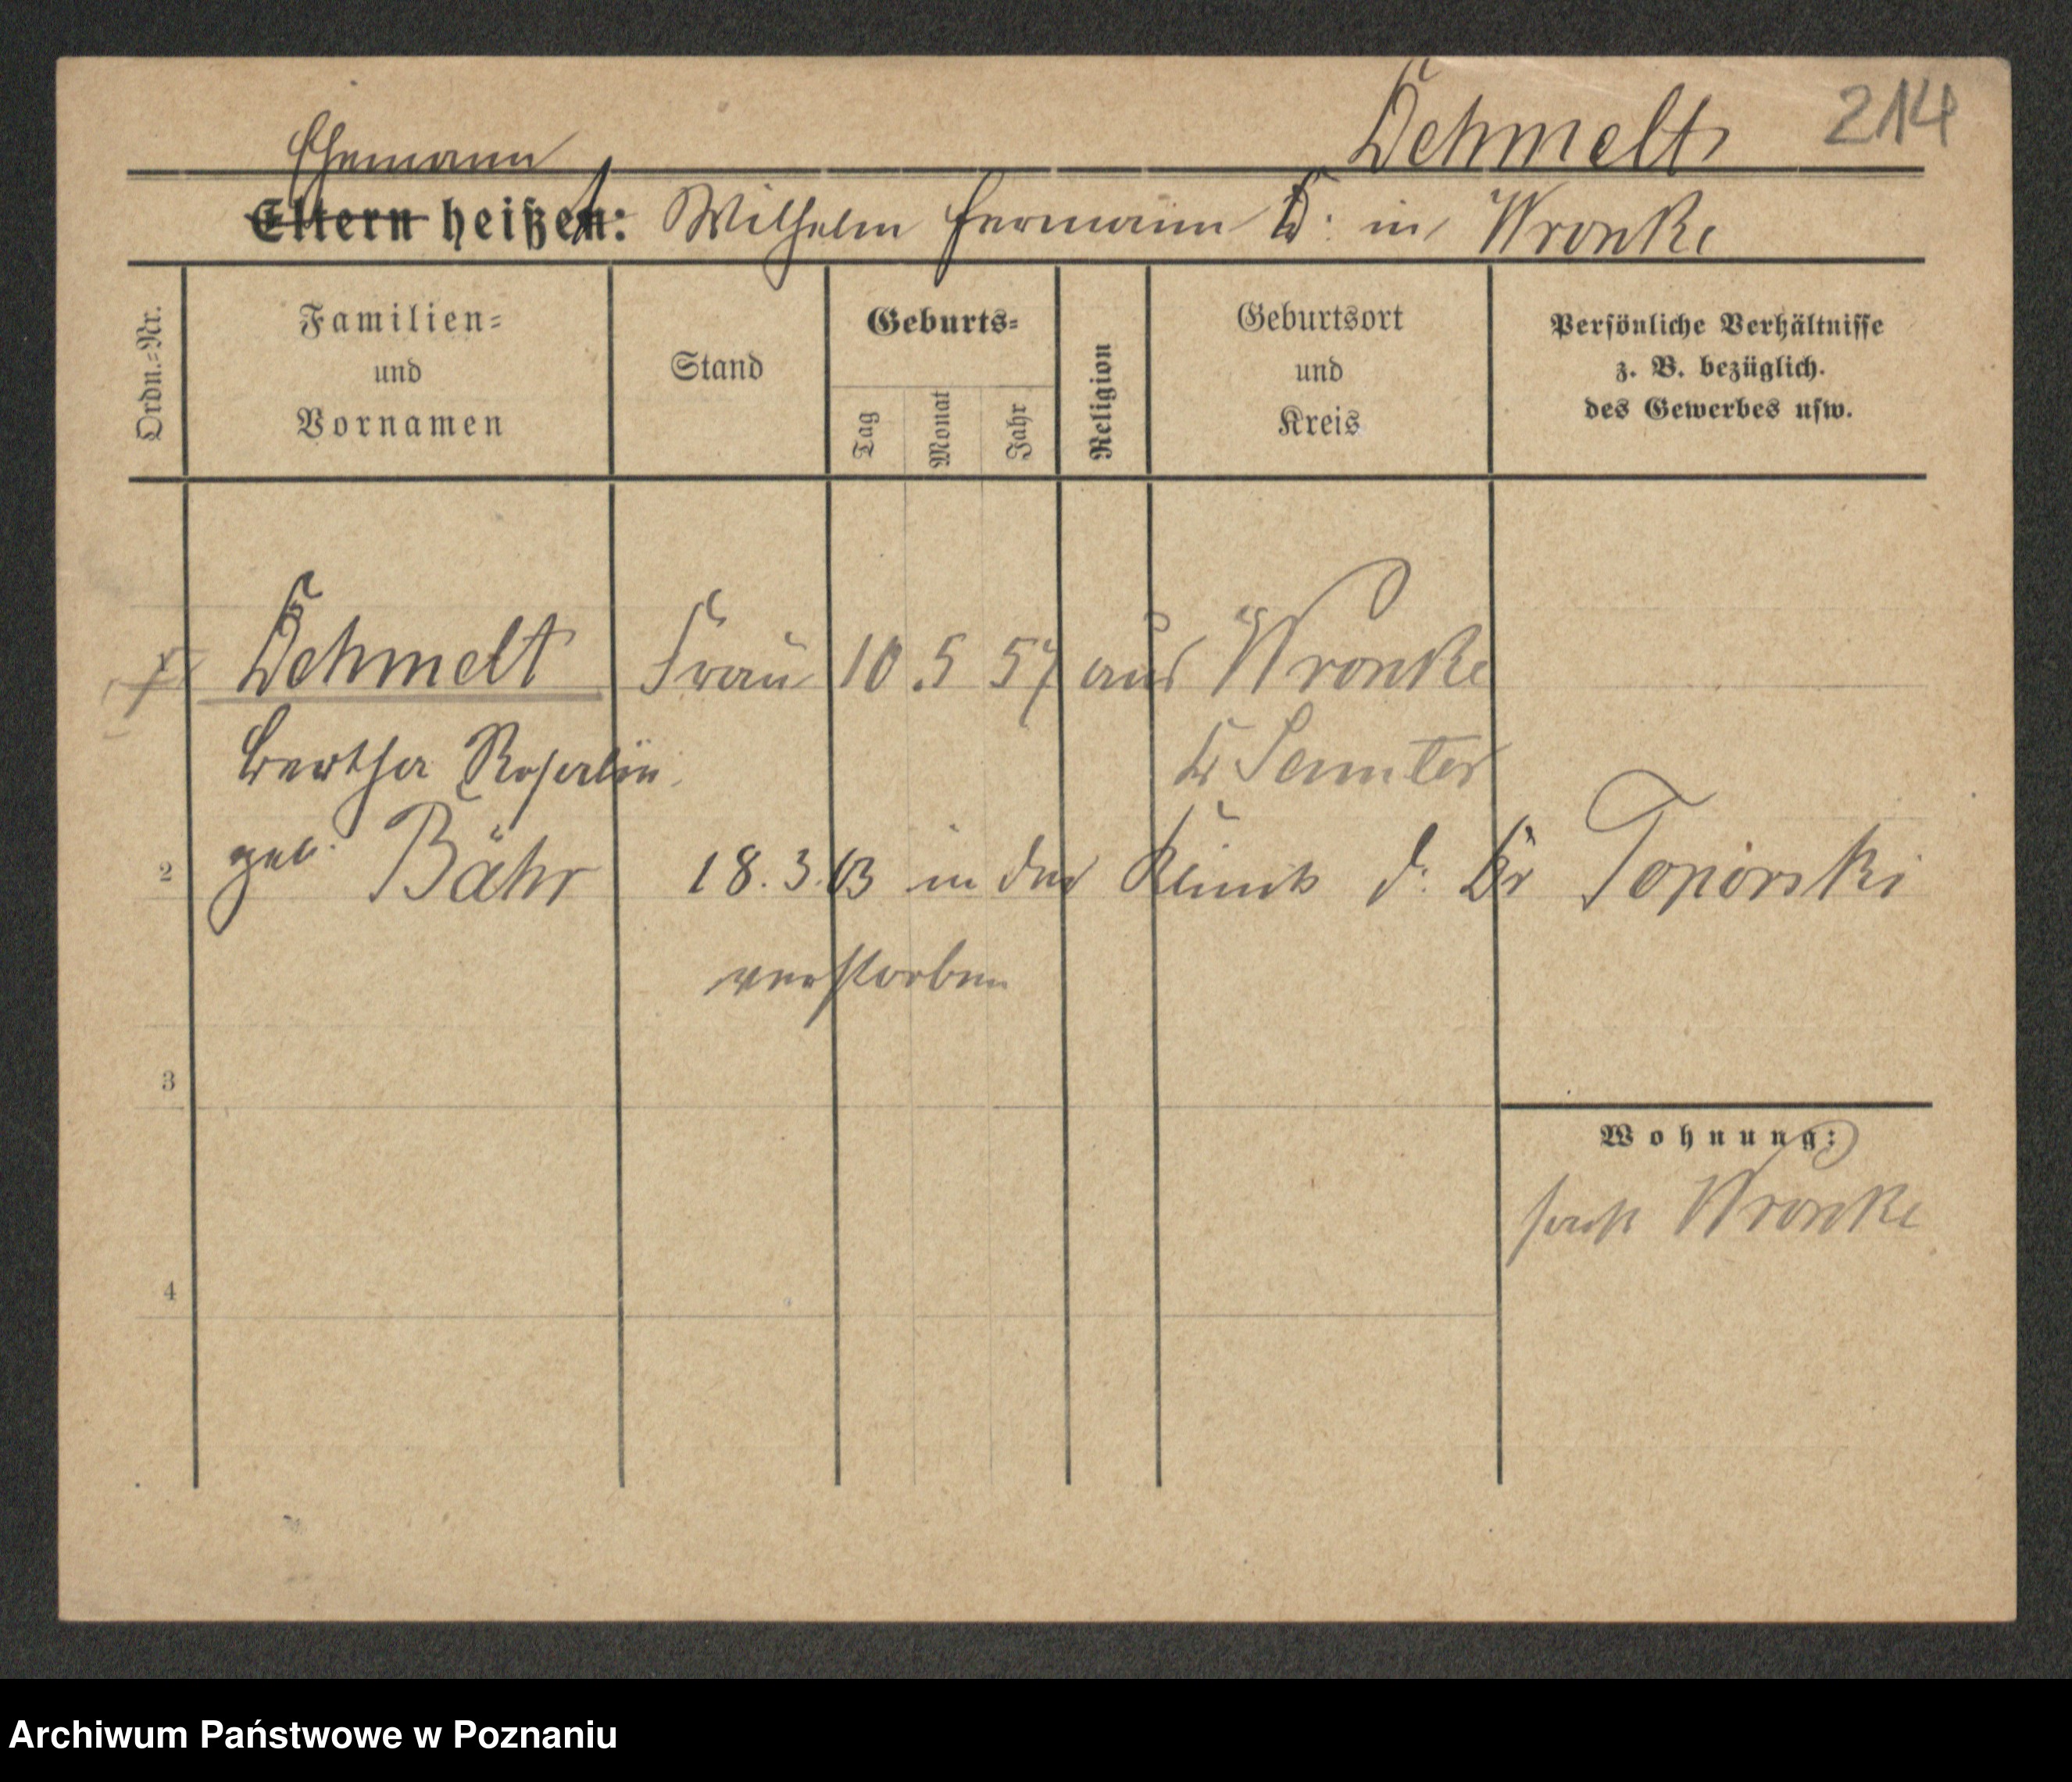 Dehmelt 214
Ehemann
Eltern heißen: Wilhelm Hermann D. in Wronke
Ordn.-Nr.
Familien-
und
Vornamen
Stand
Geburts-
Tag
Monat
Jahr
Religion
Geburtsort
und
Kreis
Persönliche Verhältnisse
z. B. bezüglich.
des Gewerbes usw.
Dehmelt Frau 10 . 5 57 aus Wronke
Bertha Rosalie Kr Samter
geb. Bähr 18. 3. 13 in der Klinik d. Dr Toporski
2
verstorben
3
Wohnung:
Wronke
4
Archiwum Państwowe w Poznaniu